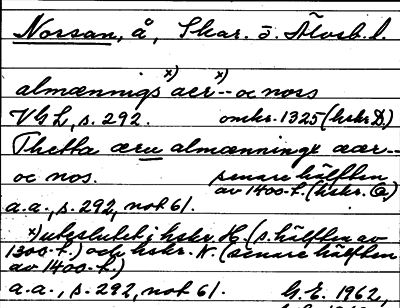 Norsan, å, Skar. o. Älvsb. l.
almænnigs x) aer -- x) oc nors
VGL, s. 292. omkr. 1325 (hskr. D)
Thetta æru almænninge aær--
oc nos. senare hälften
av 1400-t. (hskr. G.)
a.a., s. 292, not 61.
x) uteslutet i hskr. H. (s. hälften av
1300-t.) och hskr. N. (senare hälften
av 1400-t.)
a.a., s. 292, not 61. G.E. 1962,